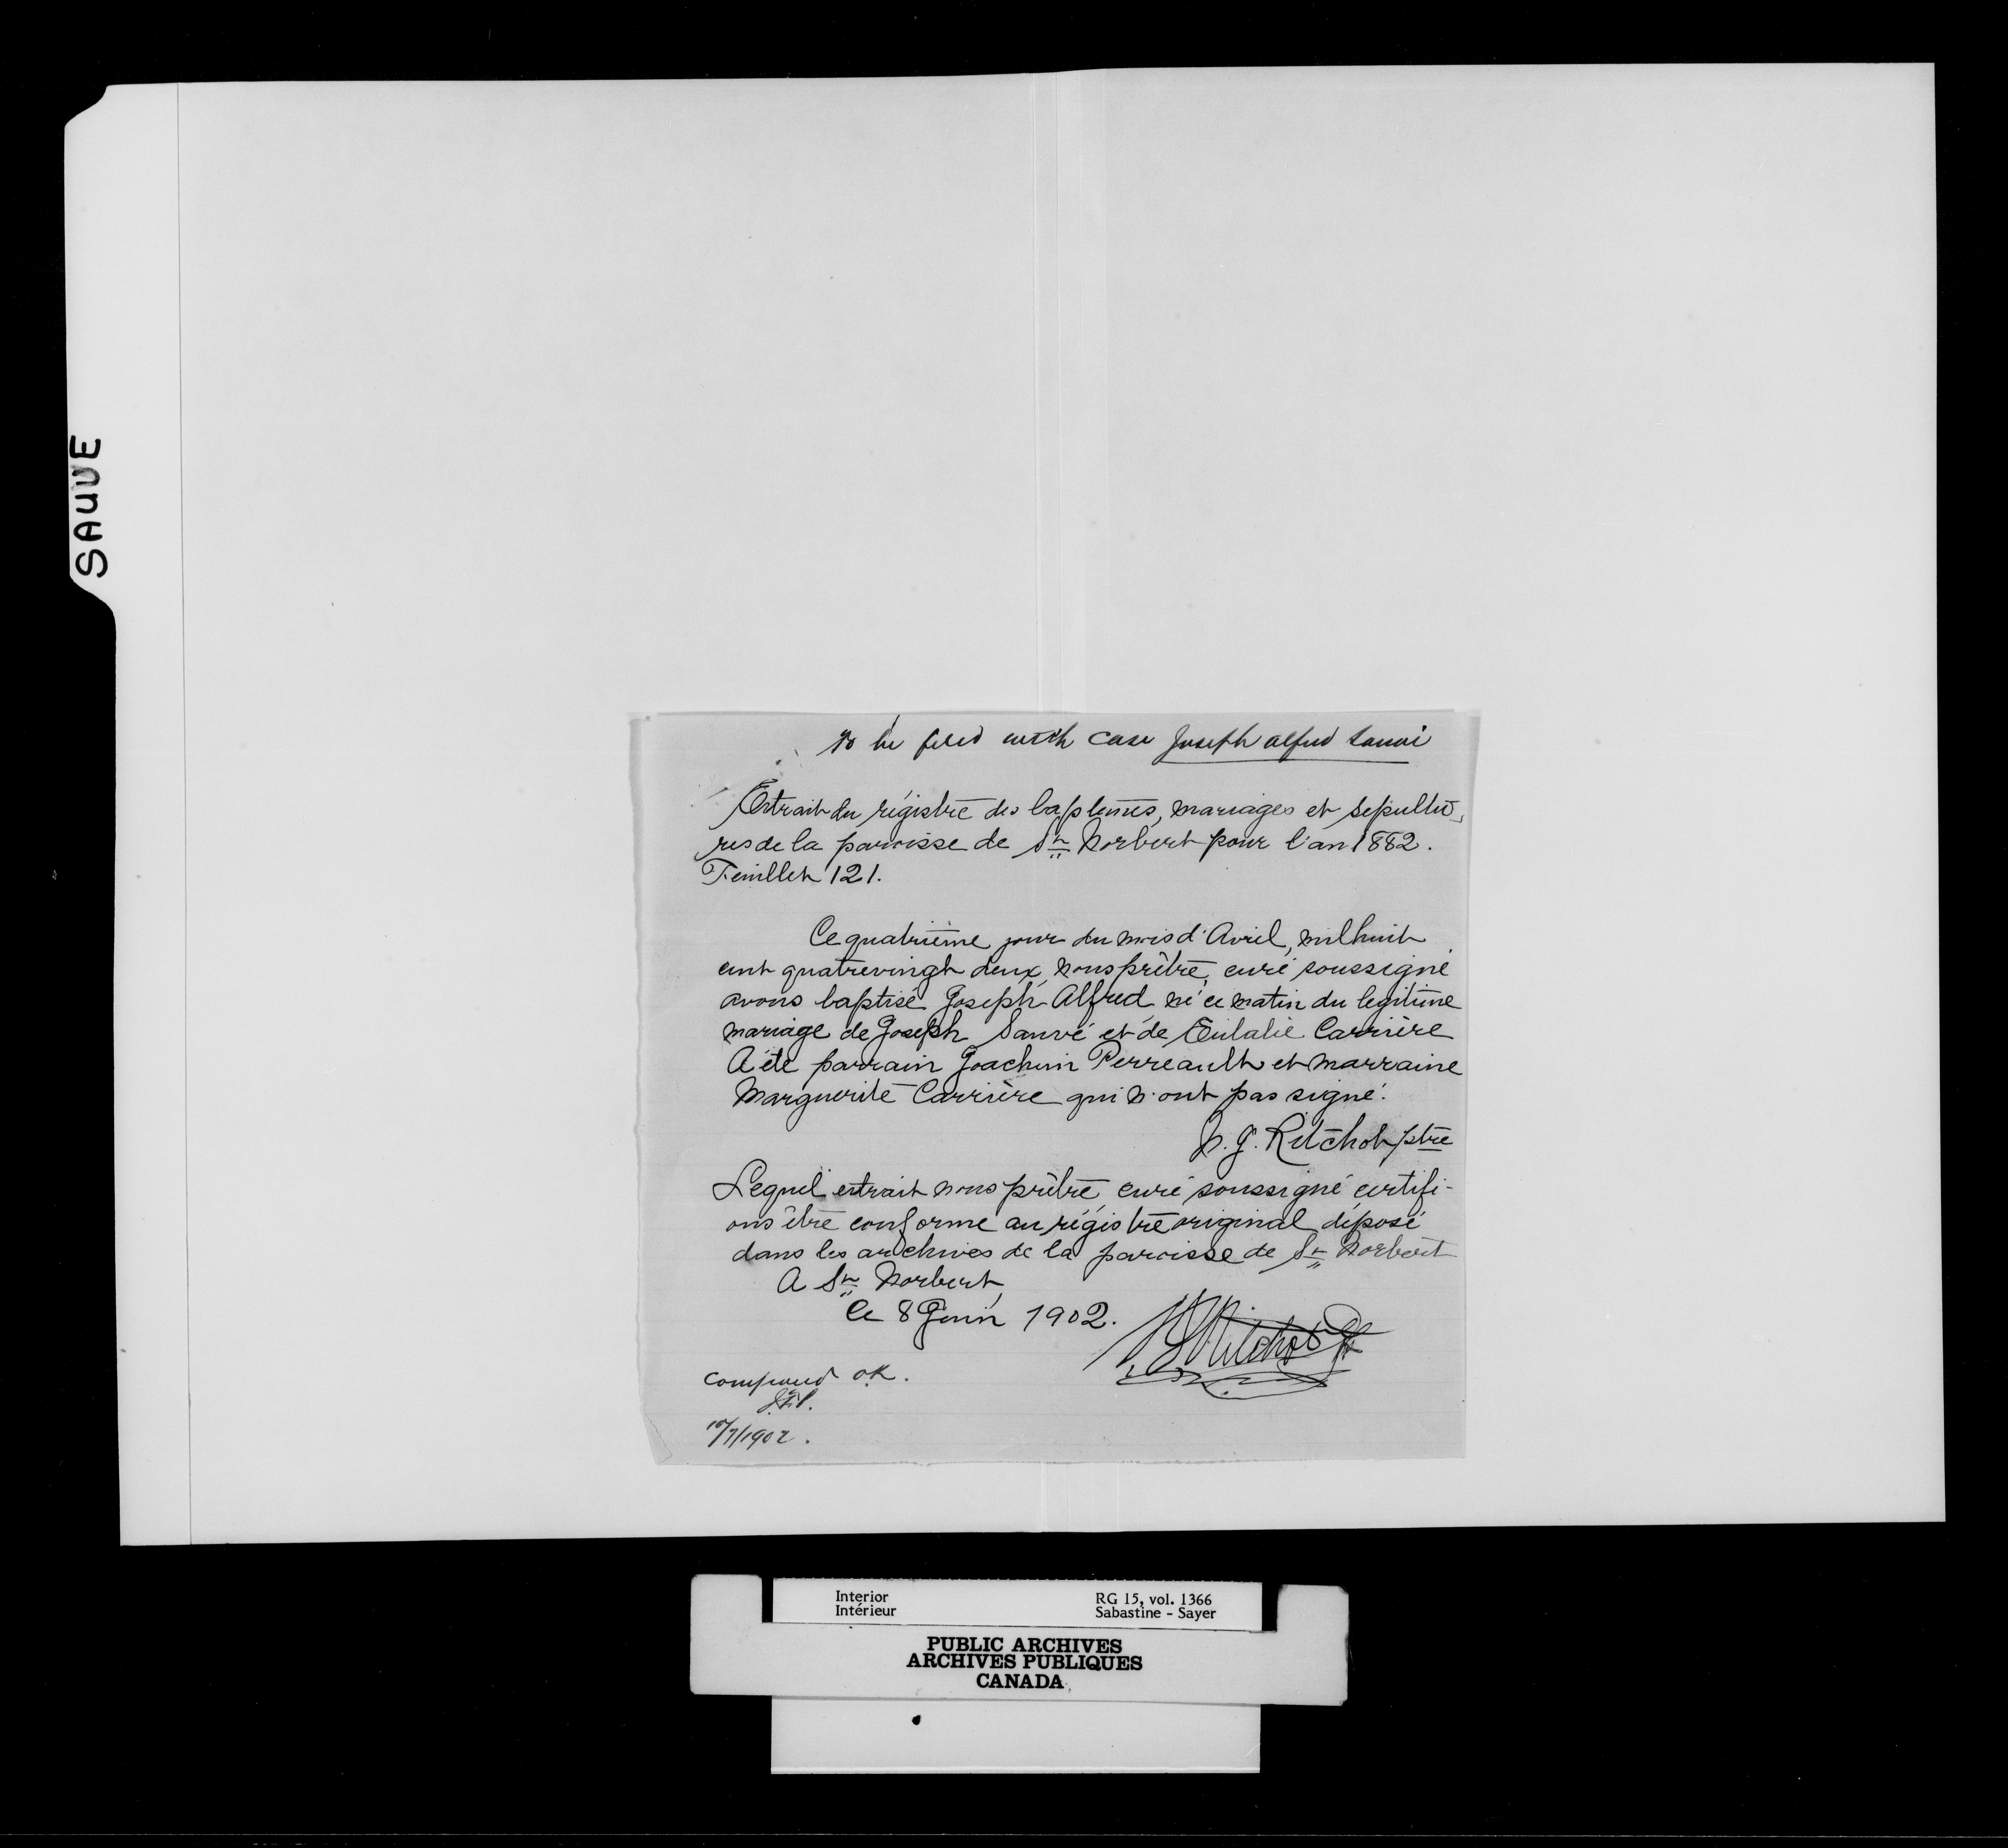 SAUVE
To be filed with case Joseph Alfred Sauvé
Extrait du régistre des baptêmes, mariages et sepultu-
res de la paroisse de St Norbert pour l'an 1882.
Feuillet 121.
Ce quatrième jour du mois d'Avril, mil huit
cent quatrevingt deux, nous prêtre, curé soussigné
avons baptisé Joseph Alfred né ce matin du legitime
mariage de Joseph Sauvé et de Eulalie Carrière
A été parrain Joachim Perreault et marraine
Marguerite Carrière qui n'ont pas signé.
N. J. Ritchot ptre
Lequel extrait nous prêtre, curé soussigné certifi-
ons être conforme au régistre original déposé
dans les archives de la paroisse de St Norbert
A St Norbert,
le 8 Juin 1902.
Ritchot Ptr
Compared OK.
10/7/1902.
Interior
Intérieur
RG 15, vol. 1366
Sabastine - Sayer
PUBLIC ARCHIVES
ARCHIVES PUBLIQUES
CANADA